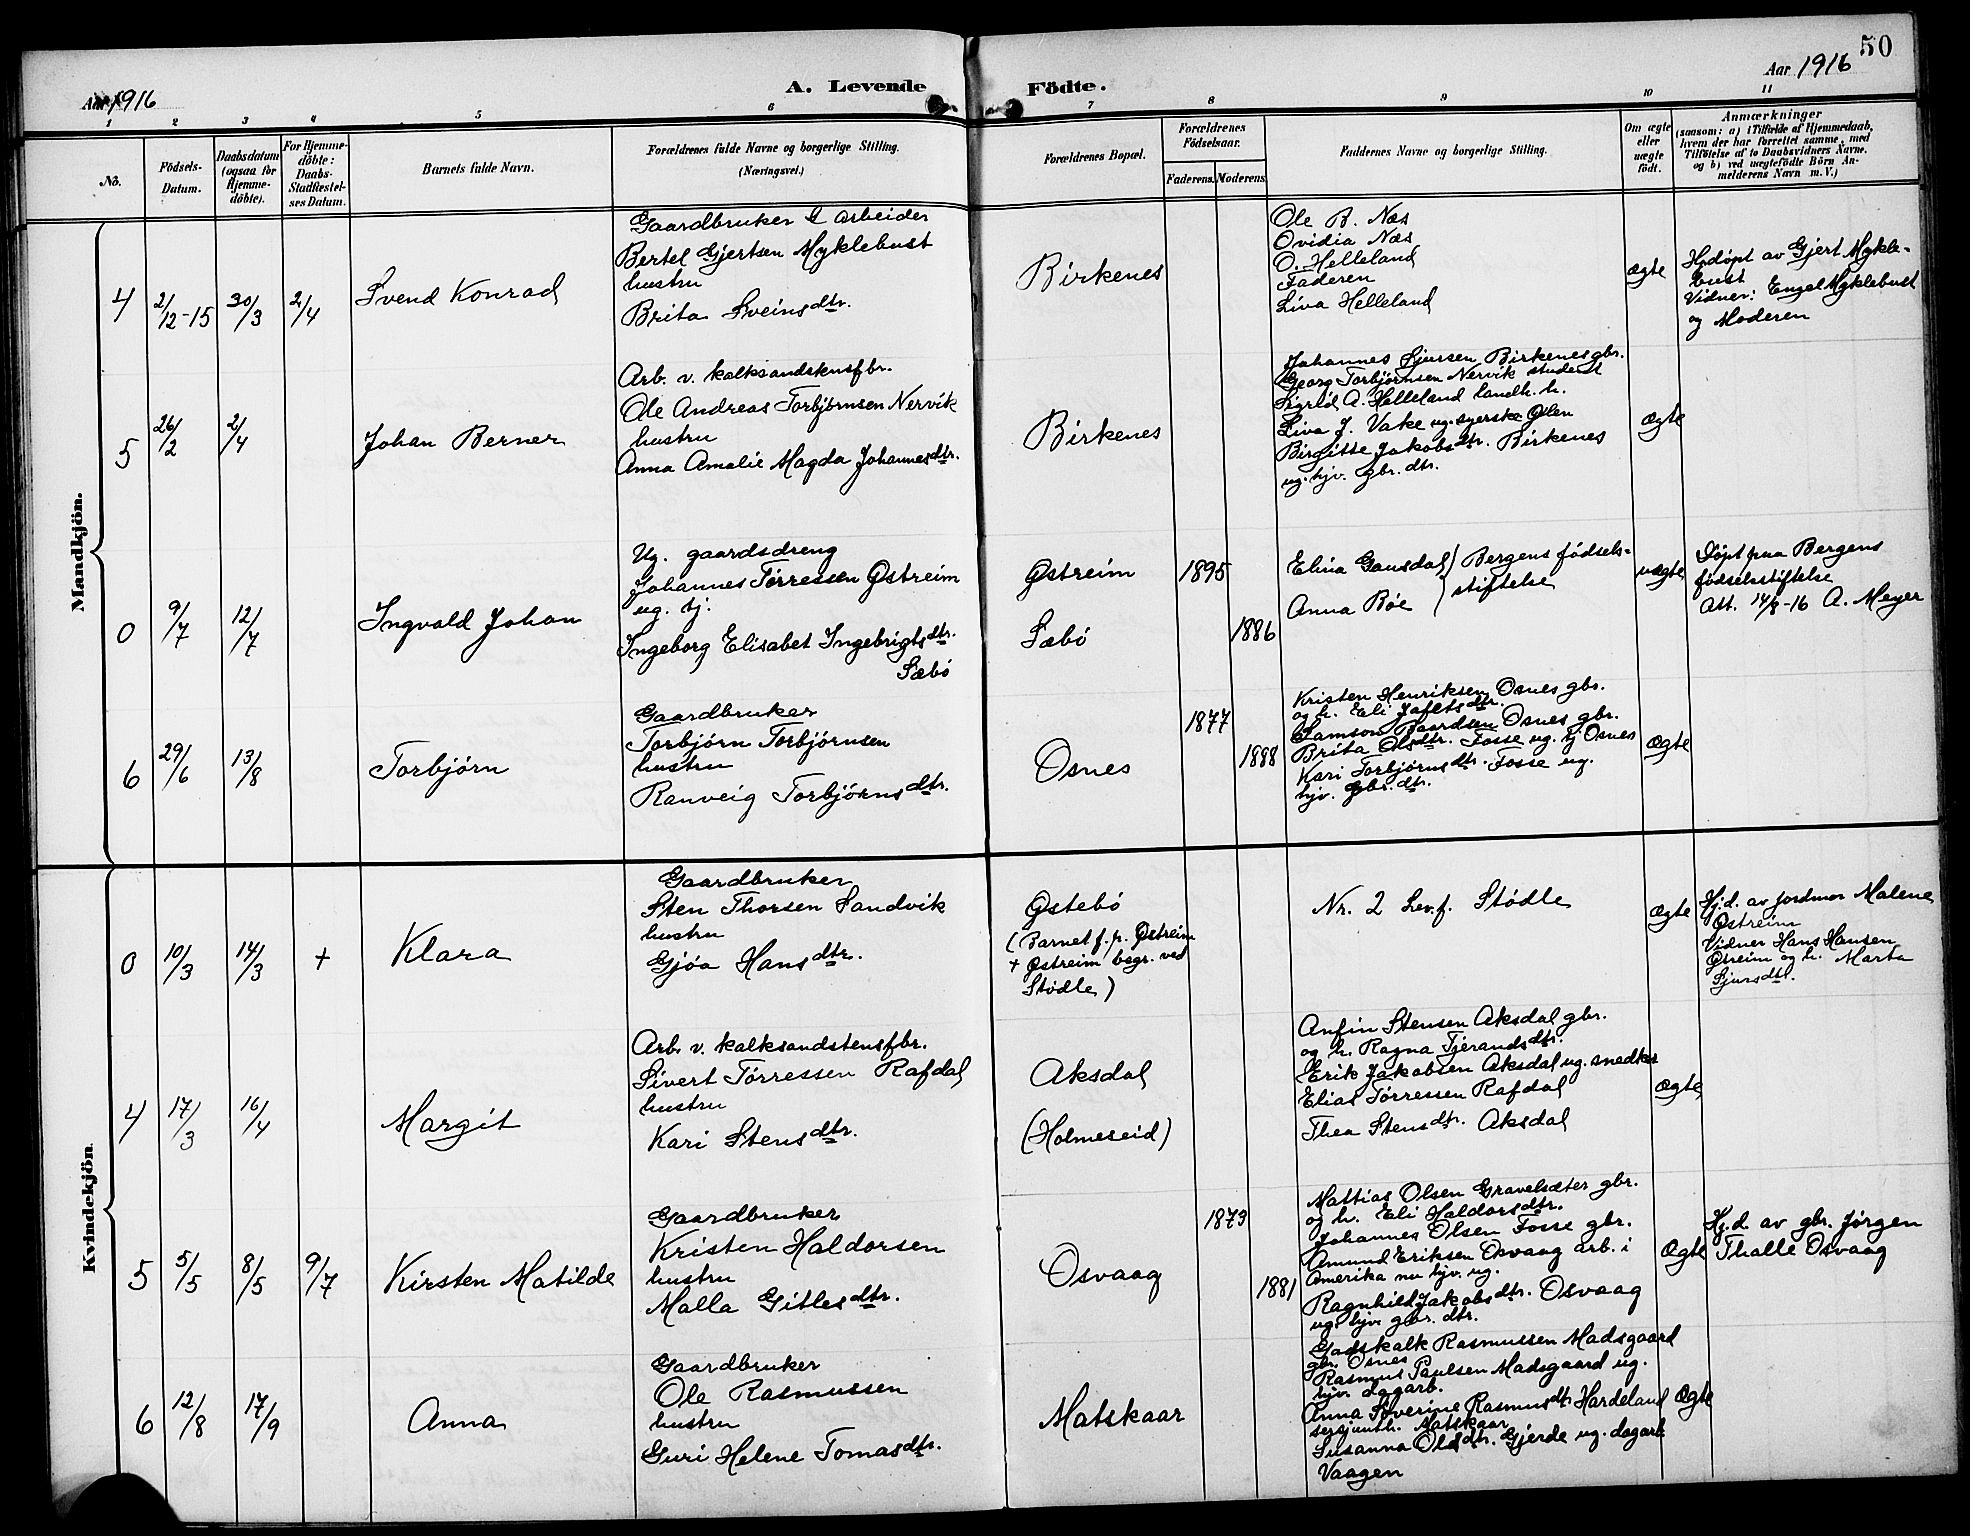 50
Aar 1916
A. Levende Födte.
Aar 1916
1 2 3 4 5 6 7 8 9 10 11
Nö.
Födsels-
Datum.
Daabsdatum
(ogsaa for
Hjemme-
döbte).
For Hjemme-
döbte:
Daabs-
Stadfæstel-
ses Datum.
Barnets fulde Navn.
Forældrenes fulde Navne og borgerlige Stilling.
(Næringsvei.)
Forældrenes Bopæl.
Forældrenes
Födselsaar.
Faderens. Moderens.
Faddernes Navne og borgerlige Stilling.
Om ægte
eller
uægte
födt.
Anmærkninger
(saasom: a) i Tilfælde af Hjemmedaab,
hvem der har forrettet samme, med
Tilföielse af to Daabsvidners Navne.
og b) ved uægtefödte Börn An-
melderens Navn m. V.)
Mandkjön.
4
2/12-15
30/3
2/4
Svend Konrad
Gaardbruker & arbeider
Bertel Gjertsen Myklebust
hustru
Brita Sveinsdtr.
Birkenes
Ole B. Næs
Ovidia Næs
O. Helleland
Faderen
Liva Helleland
ægte
Hjdøpt av Gjert Mykle-
bust
Vidner: Engel Myklebust
og Moderen
5
26/2
2/4
Johan Berner
Arb. v. kalksandstensfbr.
Ole Andreas Torbjørnsen Nervik
hustru
Anna Amalie Magda Johannesdtr.
Birkenes
Johannes Sjursen Birkenes gbr.
Georg Torbjørnsen Nervik student
Sigrid A. Helleland landh. h.
Liva J. Vake ug. syerske Ølen
Birgitte Jakobsdtr. Birkenes
ug. hjv. gbr. dtr.
ægte
0
9/7
12/7
Ingvald Johan
Ug. gaardsdreng
Johannes Tørressen Østreim
ug. tj.
Ingeborg Elisabet Ingebrigtsdtr.
Sæbø
Østreim
Sæbø
1895
1886
Elina Gausdal) Bergens fødsels-
Anna Bøe ) stiftelse
uægte
Døpt paa Bergens
fødselsstiftelse
Att. 14/8-16 A. Meyer
6
29/6
13/8
Torbjørn
Gaardbruker
Torbjørn Torbjørnsen
hustru
Ranveig Torbjørnsdtr.
Osnes
1877
1888
Kristen Henriksen Osnes gbr.
og h. Eli Jafetsdtr.
Samson Baardsen Osnes gbr.
Brita Olsdtr. Fosse ug. tj Osnes
Kari Torbjørnsdtr. Fosse ug.
hjv. gbr. dtr.
Ægte
Kvindekjön
0
10/3
14/3
+
Klara
Gaardbruker
Sten Thorsen Sandvik
hustru
Gjøa Hansdtr.
Østebø
(Barnet f. p. Østreim
+ Østreim begr. ved
Stødle)
Nr. 2 Lev. f. Stødle
Ægte
Hj.d. av jordmor Malene
Østreim
Vidner Hans Hansen
Østreim og h. Marta
Sjursdtr.
4
17/3
16/4
Margit
Arb. v. kalksandstensfbr.
Sivert Tørressen Rafdal
hustru
Kari Stensdtr.
Aksdal
(Holmeseid)
Anfin Stensen Aksdal gbr.
og h. Ragna Tjerandsdtr.
Erik Jakobsen Aksdal ug. snedker
Elias Tørressen Rafdal
Thea Stensdtr. Aksdal
Ægte
5
5/5
8/5
9/7
Kirsten Matilde
Gaardbruker
Kristen Haldorsen
hustru
Malla Gitlesdtr.
Osvaag
1873
1881
Mattias Olsen Gravelsæter gbr.
og h. Eli Haldorsdtr.
Johannes Olsen Fosse gbr.
Amund Eriksen Osvaag arb. i
Amerika nu hjv. ug.
Ragnhild Jakobsdtr. Osvaag
ug. hjv. gbr. dtr.
Ægte
Hj.d. av gbr. Jørgen
Thalle Osvaag
6
12/8
17/9
Anna
Gaardbruker
Ole Rasmussen
hustru
Guri Helene Tomasdtr.
Matskaar
Godskalk Rasmussen Madsgaard
gbr. Osnes
Rasmus Paulsen Madsgaard ug.
hjv. dagarb.
Anna Severine Rasmusdtr Hardeland
sersjanth. Matskaar
Susanna Olsdtr. Gjerde ug. dagarb
Vaagen
Ægte